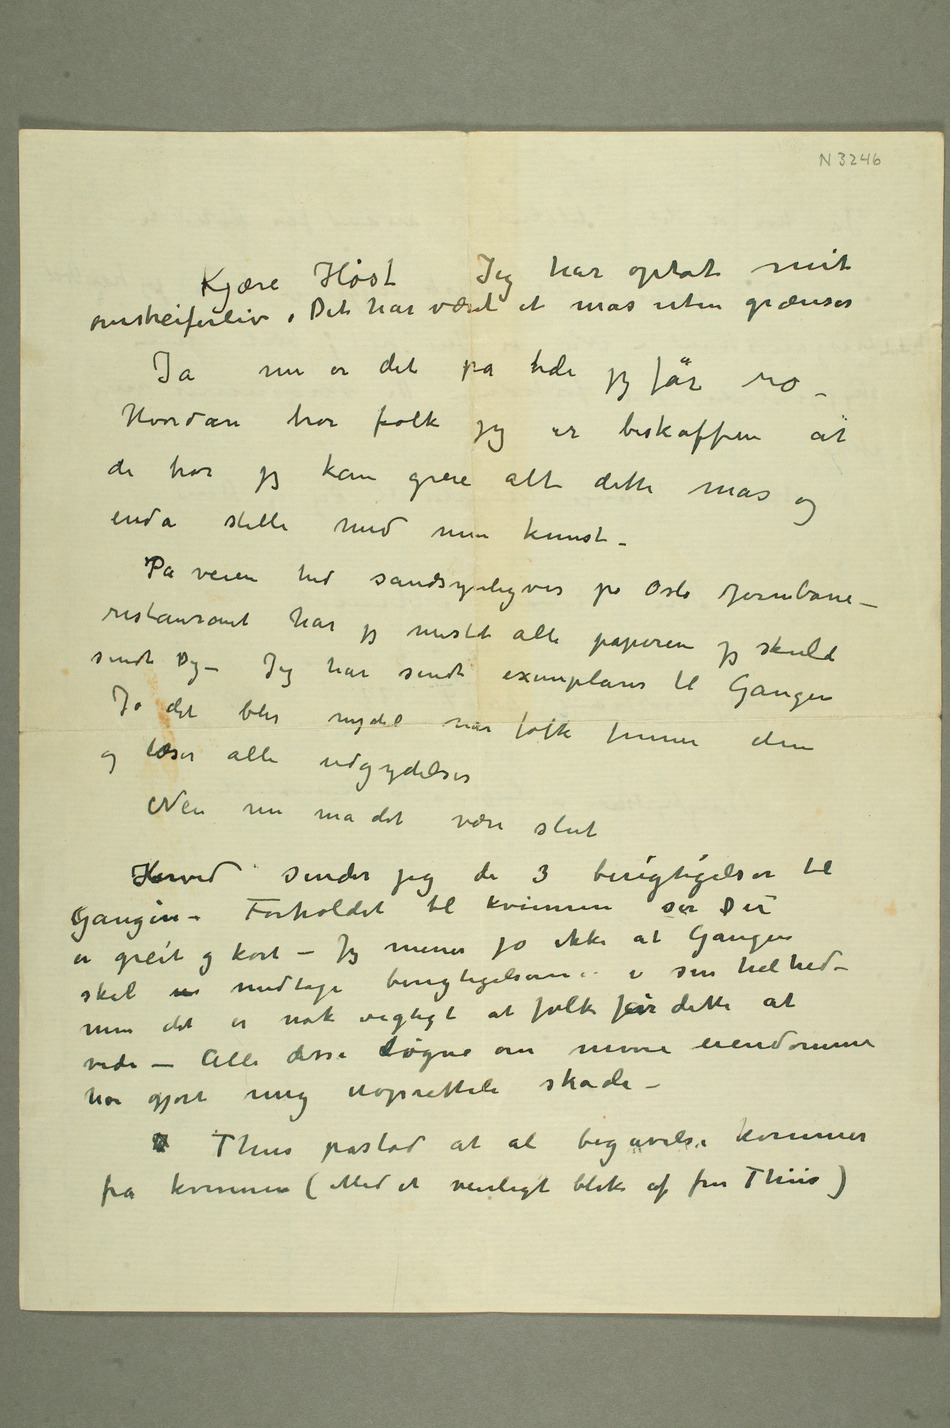 N 3246
Kjære Høst Jeg har optat mit
omstreiferliv, Det har været et mas uten grænser
Ja nu er det på tide jg får ro –
Hvordan tror folk jeg er beskaffen at
de tror jg kan greie alt dette mas og
enda stelle med min kunst –
På veien hid sandsynligvis på Oslo Jernbane–
restaurant har jg mistet alle papirene jg skulde
sendt Dig – Jeg har sendt exemplarer til Gangen
Jo det blir nydel når folk finner dem
og læser alle udgydelser
Nei nu må det være slut
Herved sender jeg de 3 berigtigelser til
Gangen – Forholdet til kvinnen ser Du
er greit og kort – Jg mener jo ikke at Gangen
skal medtage berigtigelserne i sin helhed –
men det er nok vigtigt at folk får dette at
vide – Alle disse Løgne om mine eiendomme
har gjort mig uoprettele skade –
Thiis påstod at al begavelse kommer
fra kvinnen (Med et venligt blik af fru Thiis)